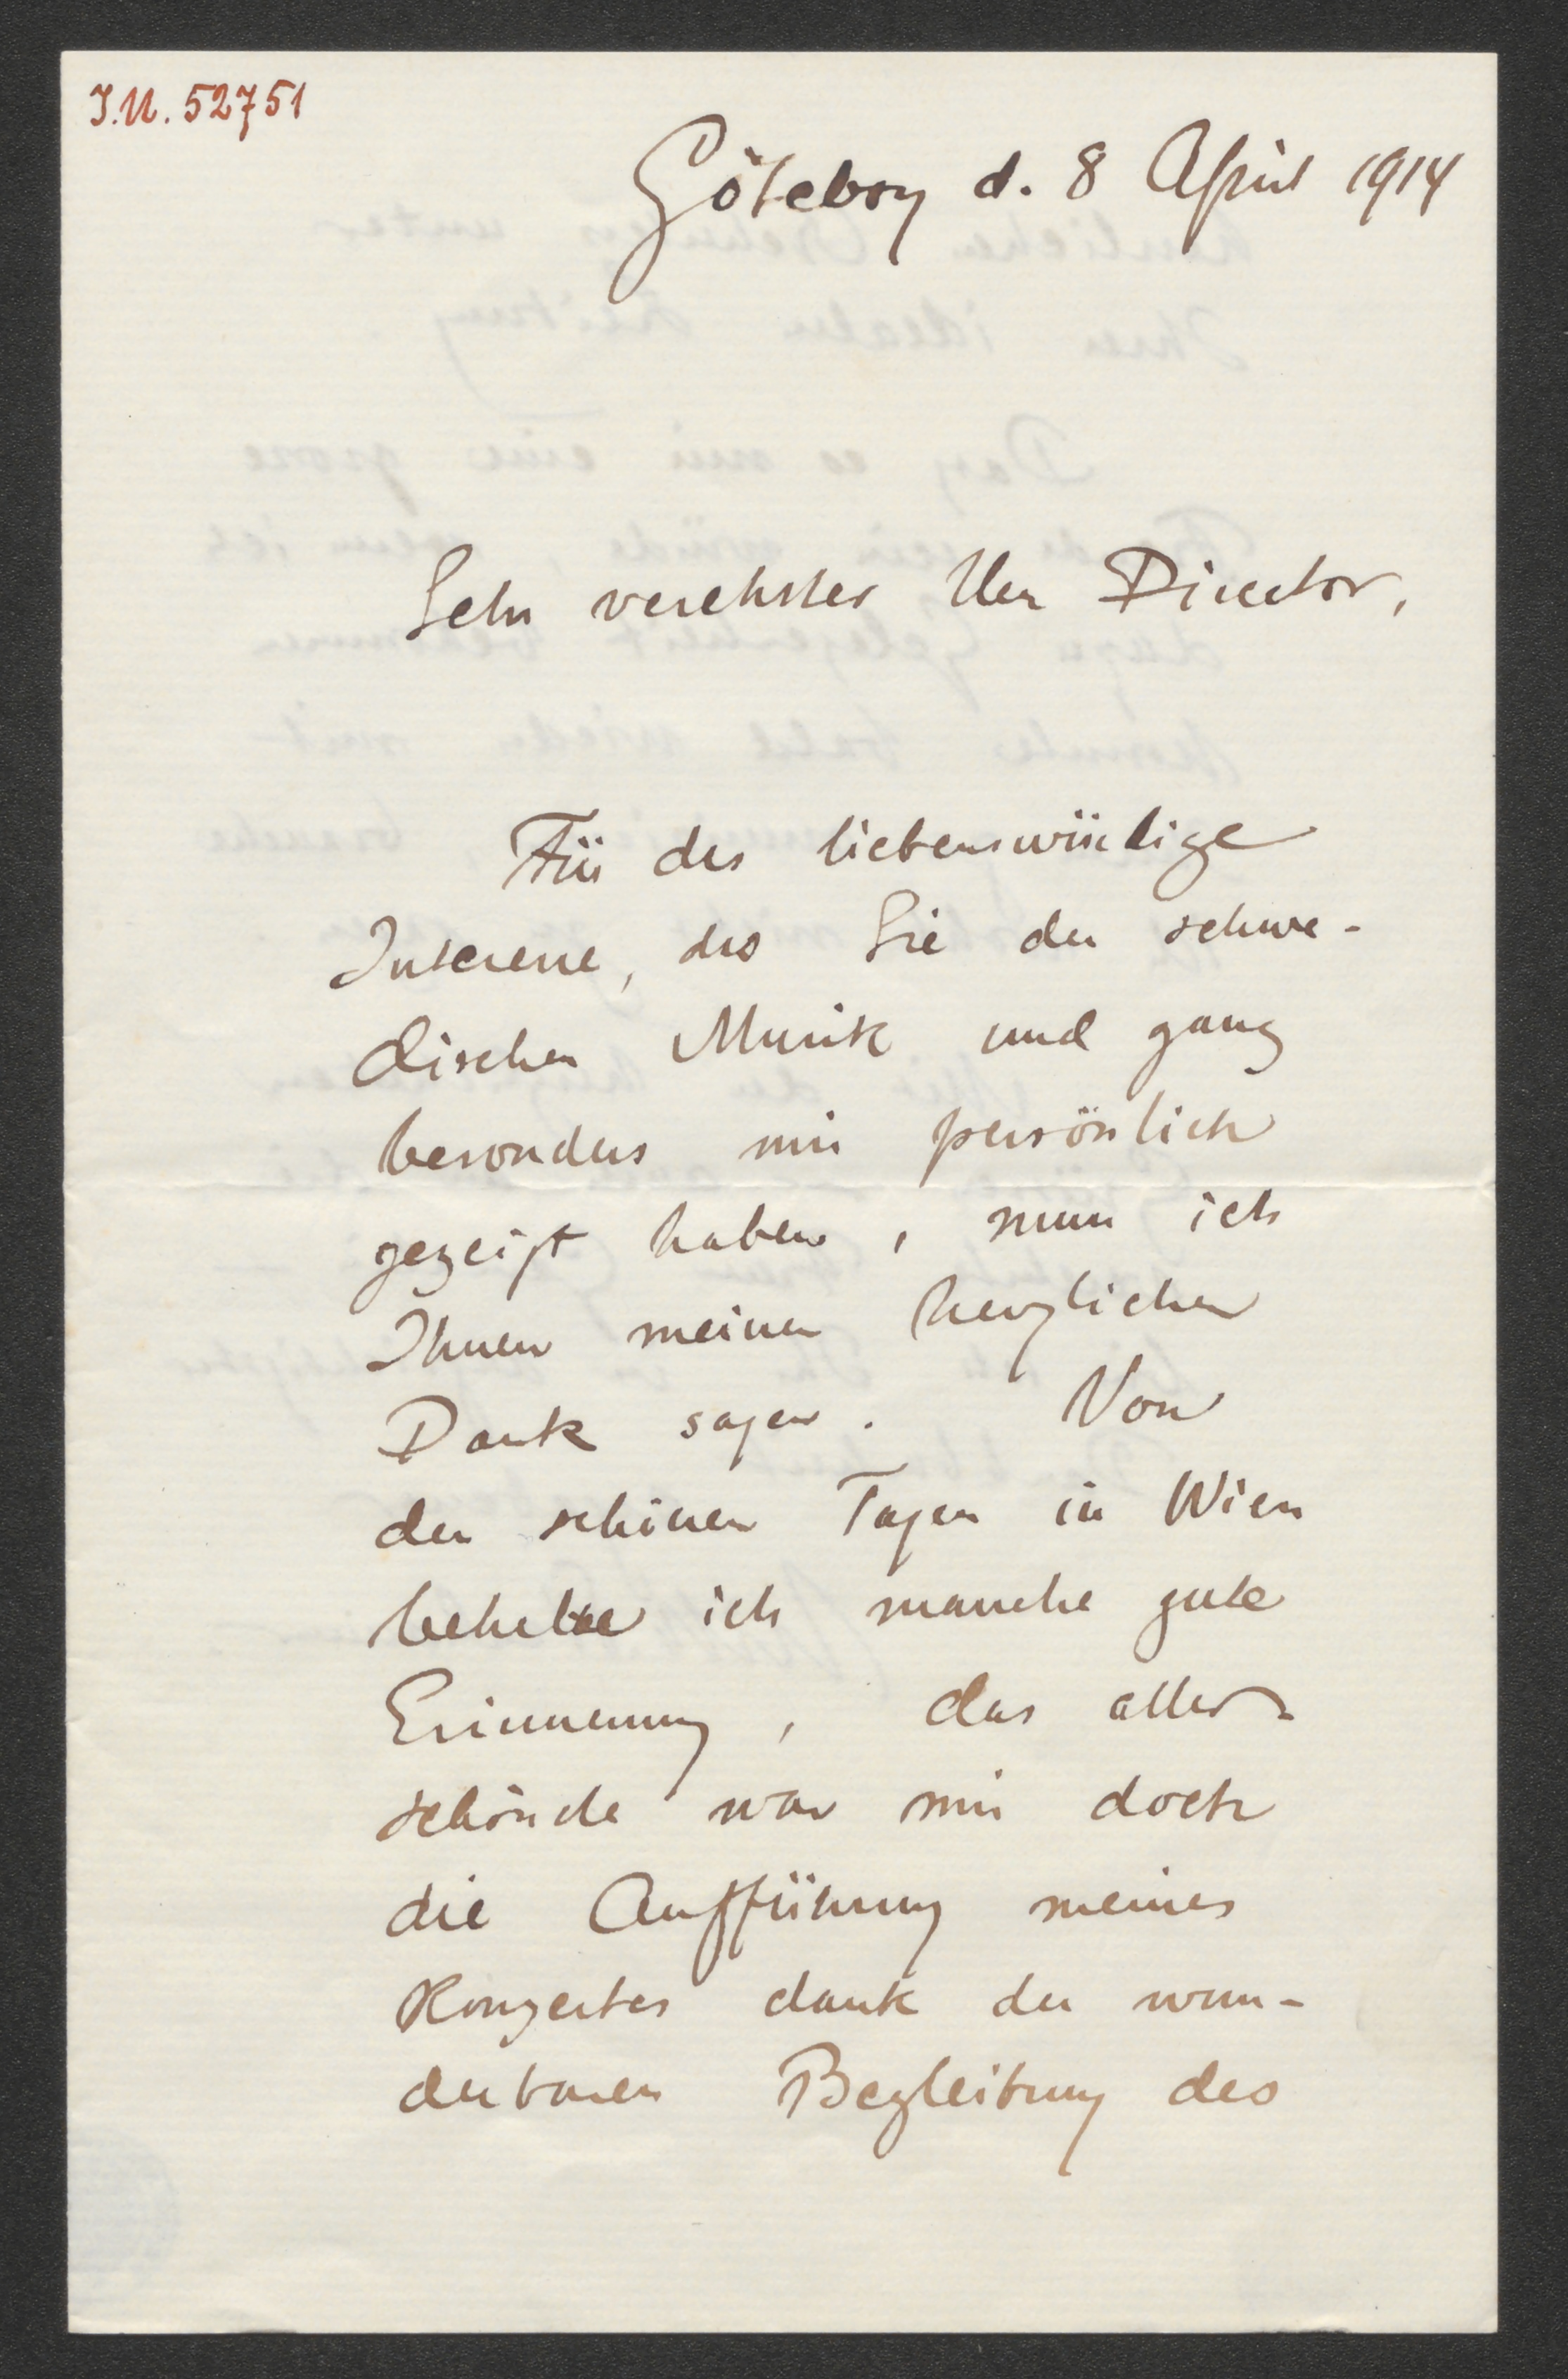 I.N. 52751
Göteborg d. 8 April 1914
Sehr verehrter Herr Director,
Für das liebenswürdige
Interesse, das Sie der schwe-
dischen Musik und ganz
besonders mir persönlich
gezeigt haben, muss ich
Ihnen meinen herzlichen
Dank sagen. Von
den schönen Tagen in Wien
behalte ich manche gute
Erinnerung, das aller-
schönste war mir doch
die Aufführung meines
Konzertes dank der wun-
derbaren Begleitung des